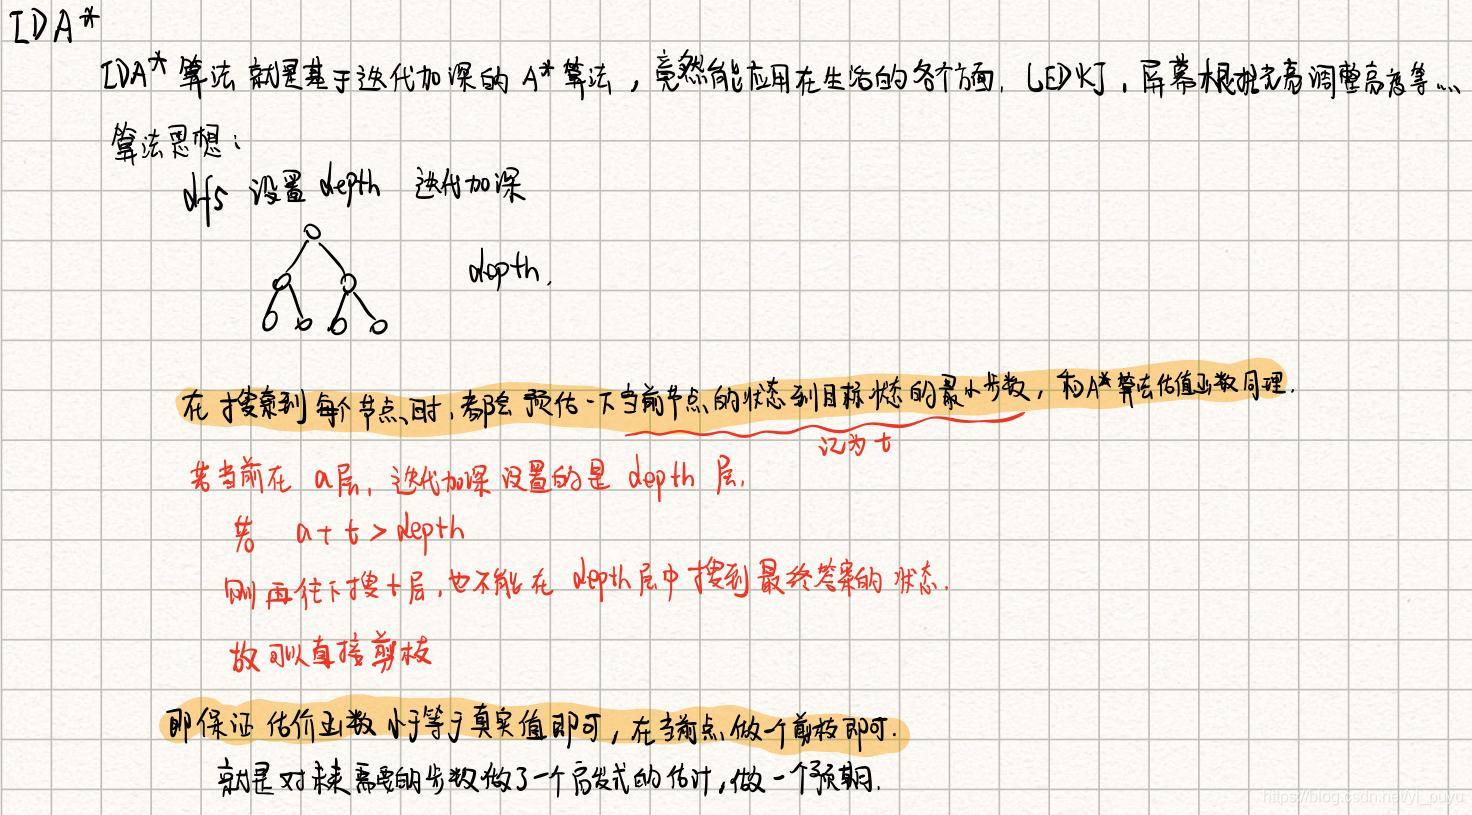 IDA*
IDA* 算法 就是基于迭代加深的 A* 算法，竟然能应用在生活的各个方面. LED灯，屏幕根据光亮调整亮度等...
算法思想：
dfs 设置 depth 迭代加深
depth.
在搜索到每个节点时，都会预估一下当前节点的状态到目标状态的最小步数，和A*算法估值函数同理.
记为 t
若当前在 a层，迭代加深设置的是 depth 层.
若 a + t > depth
则再往下搜 t 层，也不能在 depth 层中搜到最终答案的状态.
故可以直接剪枝
即保证 估价函数 小于等于真实值即可，在当前点做一个剪枝即可.
就是对未来需要的步数做了一个启发式的估计，做一个预期.
https://blog.csdn.net/yl_puyu